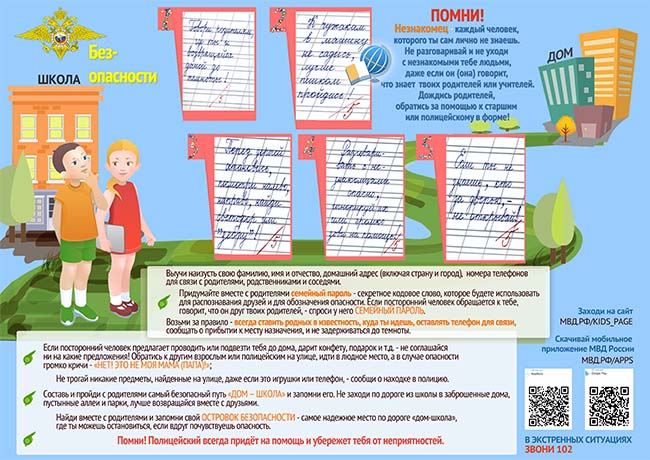 Без-
опасности
ШКОЛА
Говори родителям,
где ты и
возвращайся
домой
К чужакам
в машину
не садись,
лучше
пешком
пройдись!
5
ПОМНИ!
Незнакомец - каждый человек,
которого ты сам лично не знаешь.
Не разговаривай и не уходи
с незнакомыми тебе людьми,
даже если он (она) говорит,
что знает твоих родителей или учителей.
Дождись родителей,
обратись за помощью к старшим
или полицейскому в форме!
ДОМ
Перед дорогой
остановись,
посмотри налево,
направо, найди
светофор или
"зебру"!
5
Разговари-
вать с не-
знакомцами
опасно,
игнорируй их
или
зови на помощь!
5
Если ты не
знаешь, кто
за дверью, -
не открывай!
5
Выучи наизусть свою фамилию, имя и отчество, домашний адрес (включая страну и город), номера телефонов
для связи с родителями, родственниками и соседями.
Придумайте вместе с родителями семейный пароль - секретное кодовое слово, которое будете использовать
для распознавания друзей и для обозначения опасности. Если посторонний человек обращается к тебе,
говорит, что он друг твоих родителей, - спроси у него СЕМЕЙНЫЙ ПАРОЛЬ.
Возьми за правило - всегда ставить родных в известность, куда ты идешь, оставлять телефон для связи,
сообщать о прибытии к месту назначения, и не задерживаться до темноты.
Если посторонний человек предлагает проводить или подвезти тебя до дома, дарит конфету, подарок и т.д. - не соглашайся
ни на какие предложения! Обратись к другим взрослым или полицейским на улице, иди в людное место, а в случае опасности
громко кричи - «НЕТ! ЭТО НЕ МОЯ МАМА (ПАПА)!»;
Не трогай никакие предметы, найденные на улице, даже если это игрушки или телефон, - сообщи о находке в полицию.
Составь и пройди с родителями самый безопасный путь «ДОМ – ШКОЛА» и запомни его. Не заходи по дороге из школы в заброшенные дома,
пустынные аллеи и парки, лучше возвращайся вместе с друзьями.
Найди вместе с родителями и запомни свой ОСТРОВОК БЕЗОПАСНОСТИ - самое надежное место по дороге «дом-школа»,
где ты можешь остановиться, если вдруг почувствуешь опасность.
Помни! Полицейский всегда придёт на помощь и убережет тебя от неприятностей.
Заходи на сайт
МВД.РФ/KIDS_PAGE
Скачивай мобильное
приложение МВД России
МВД.РФ/APPS
В ЭКСТРЕННЫХ СИТУАЦИЯХ
ЗВОНИ 102